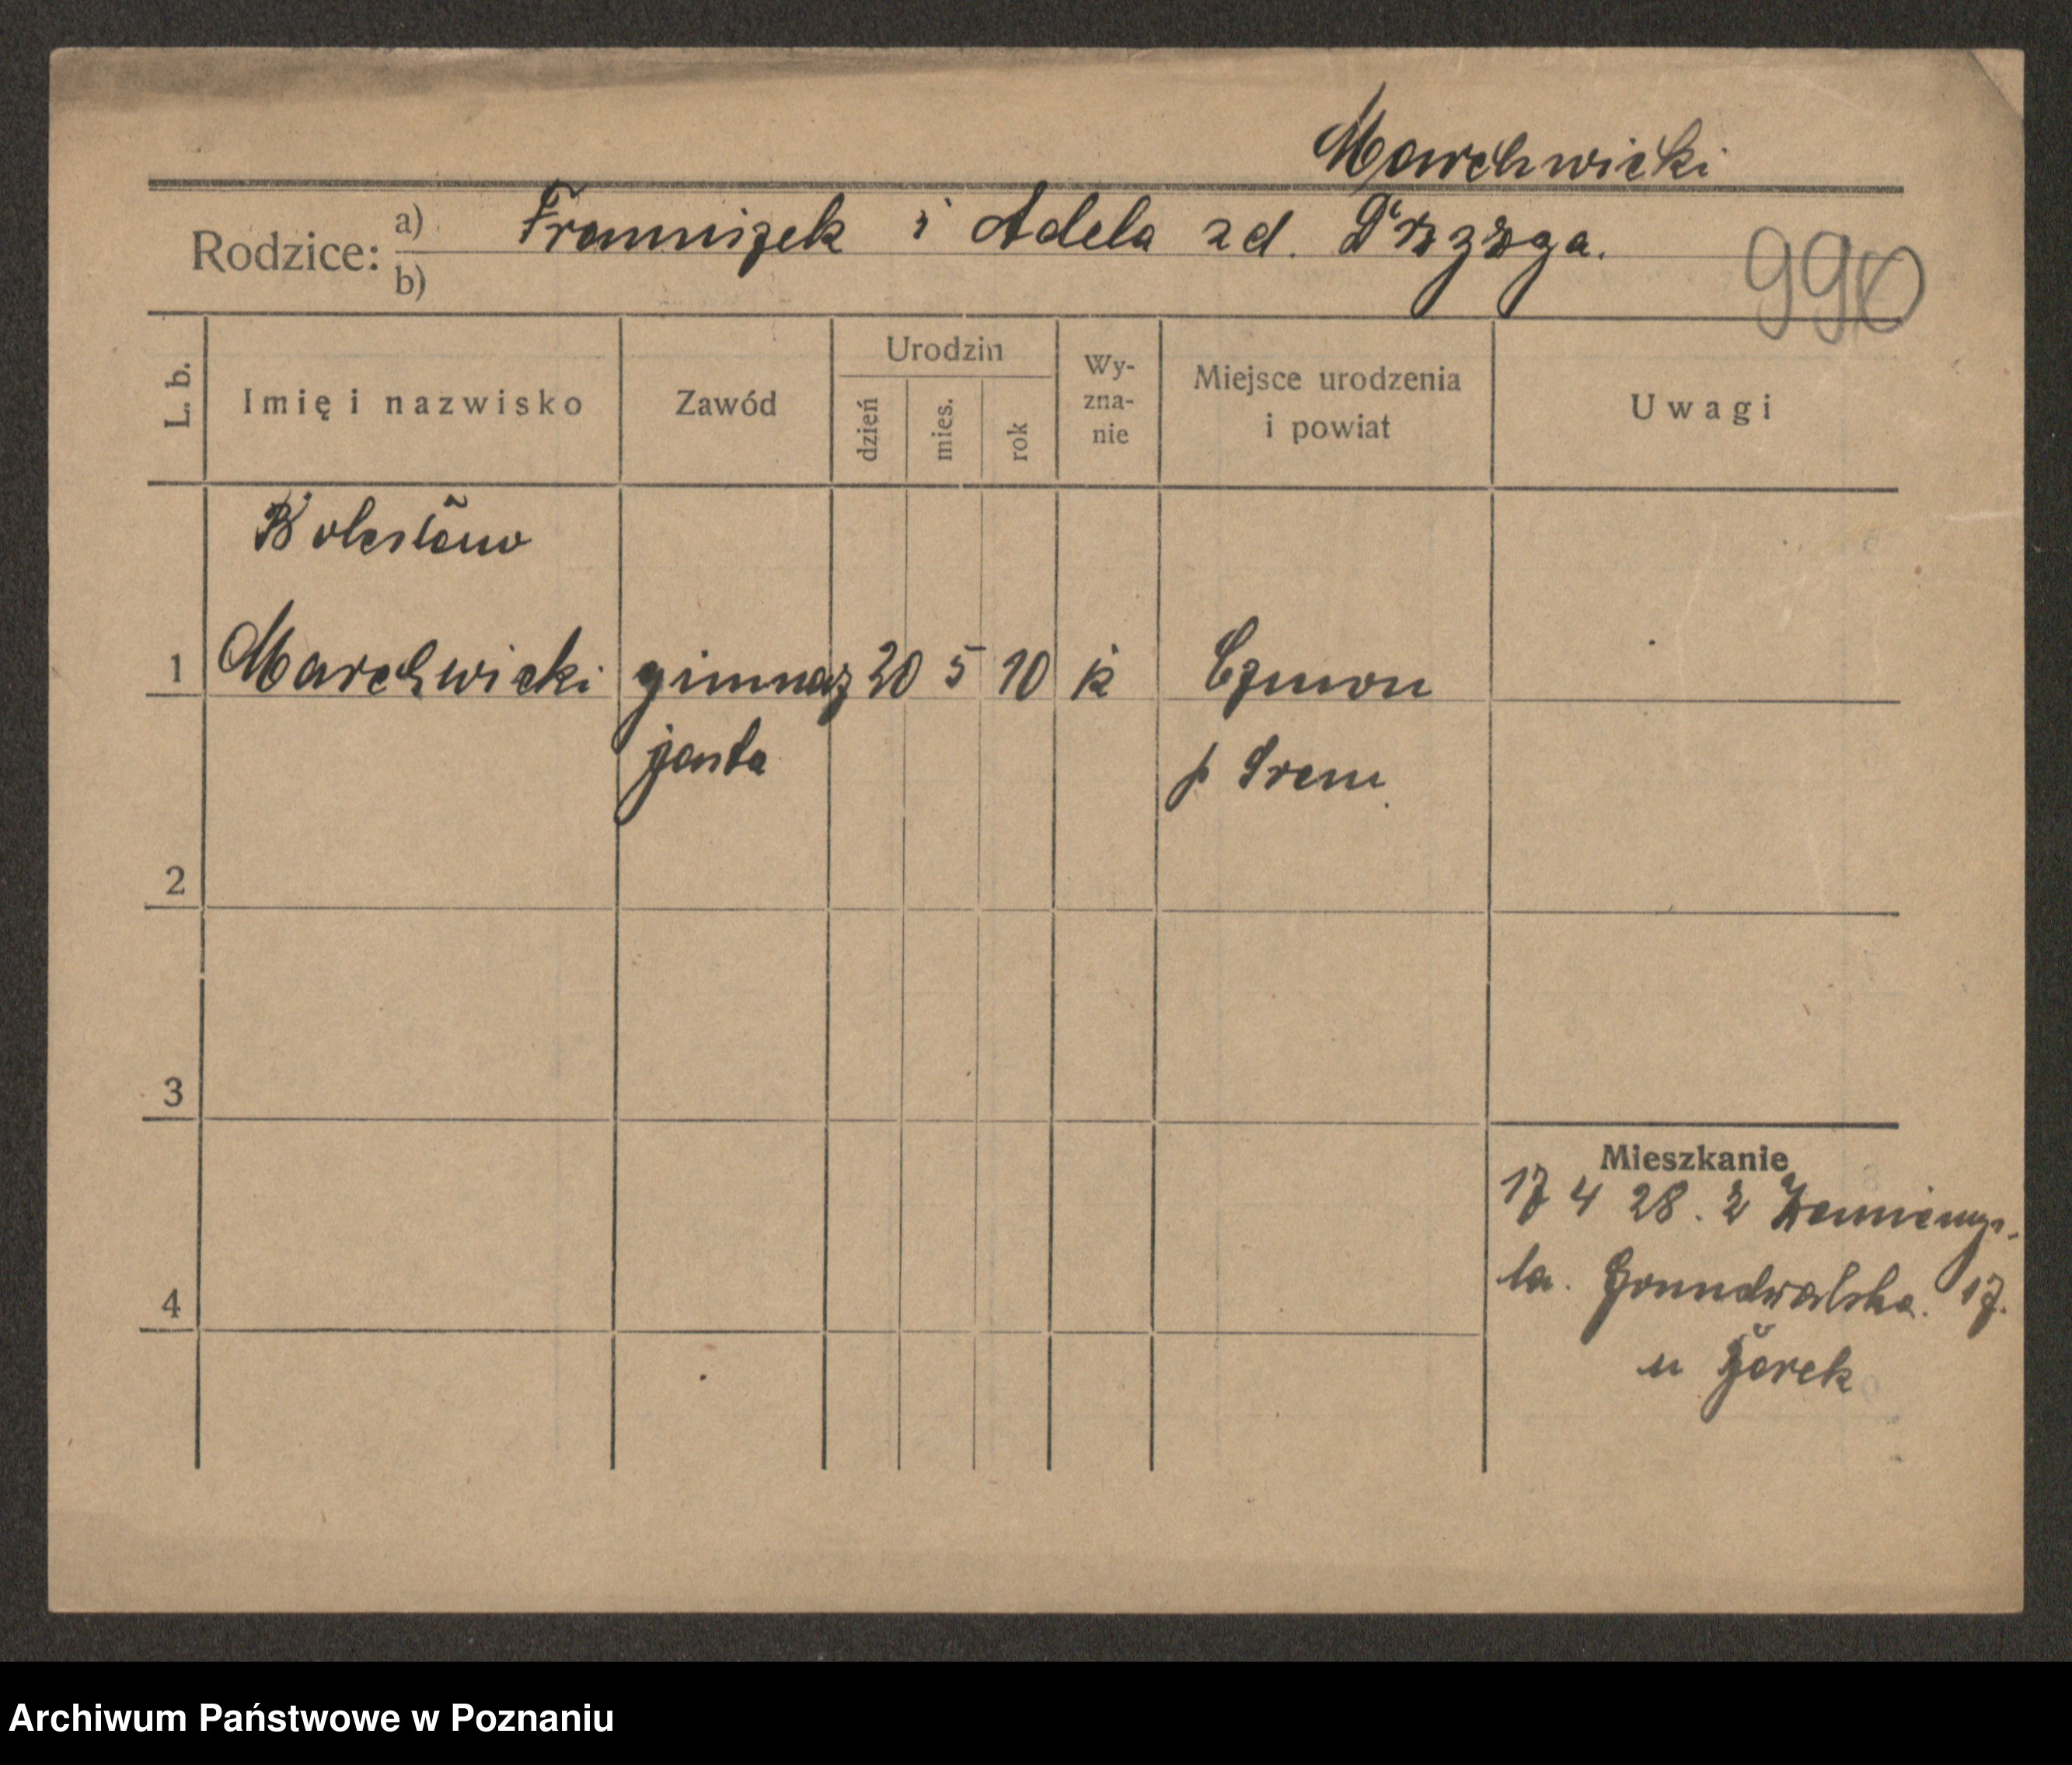 Marchwicki
Rodzice: a) Franciszek i Adela zd.
b)
990
L. b. Imię i nazwisko Zawód Urodzin dzień mies. rok Wy-zna-nie Miejsce urodzenia i powiat Uwagi
Bolesław
1 Marchwicki gimnaz 20 5 10 k Czmoń
jasta p Śrem
2
3
Mieszkanie
17 4 28. z
4
la. Grunwaldzka. 17.
u Żorek
Archiwum Państwowe w Poznaniu